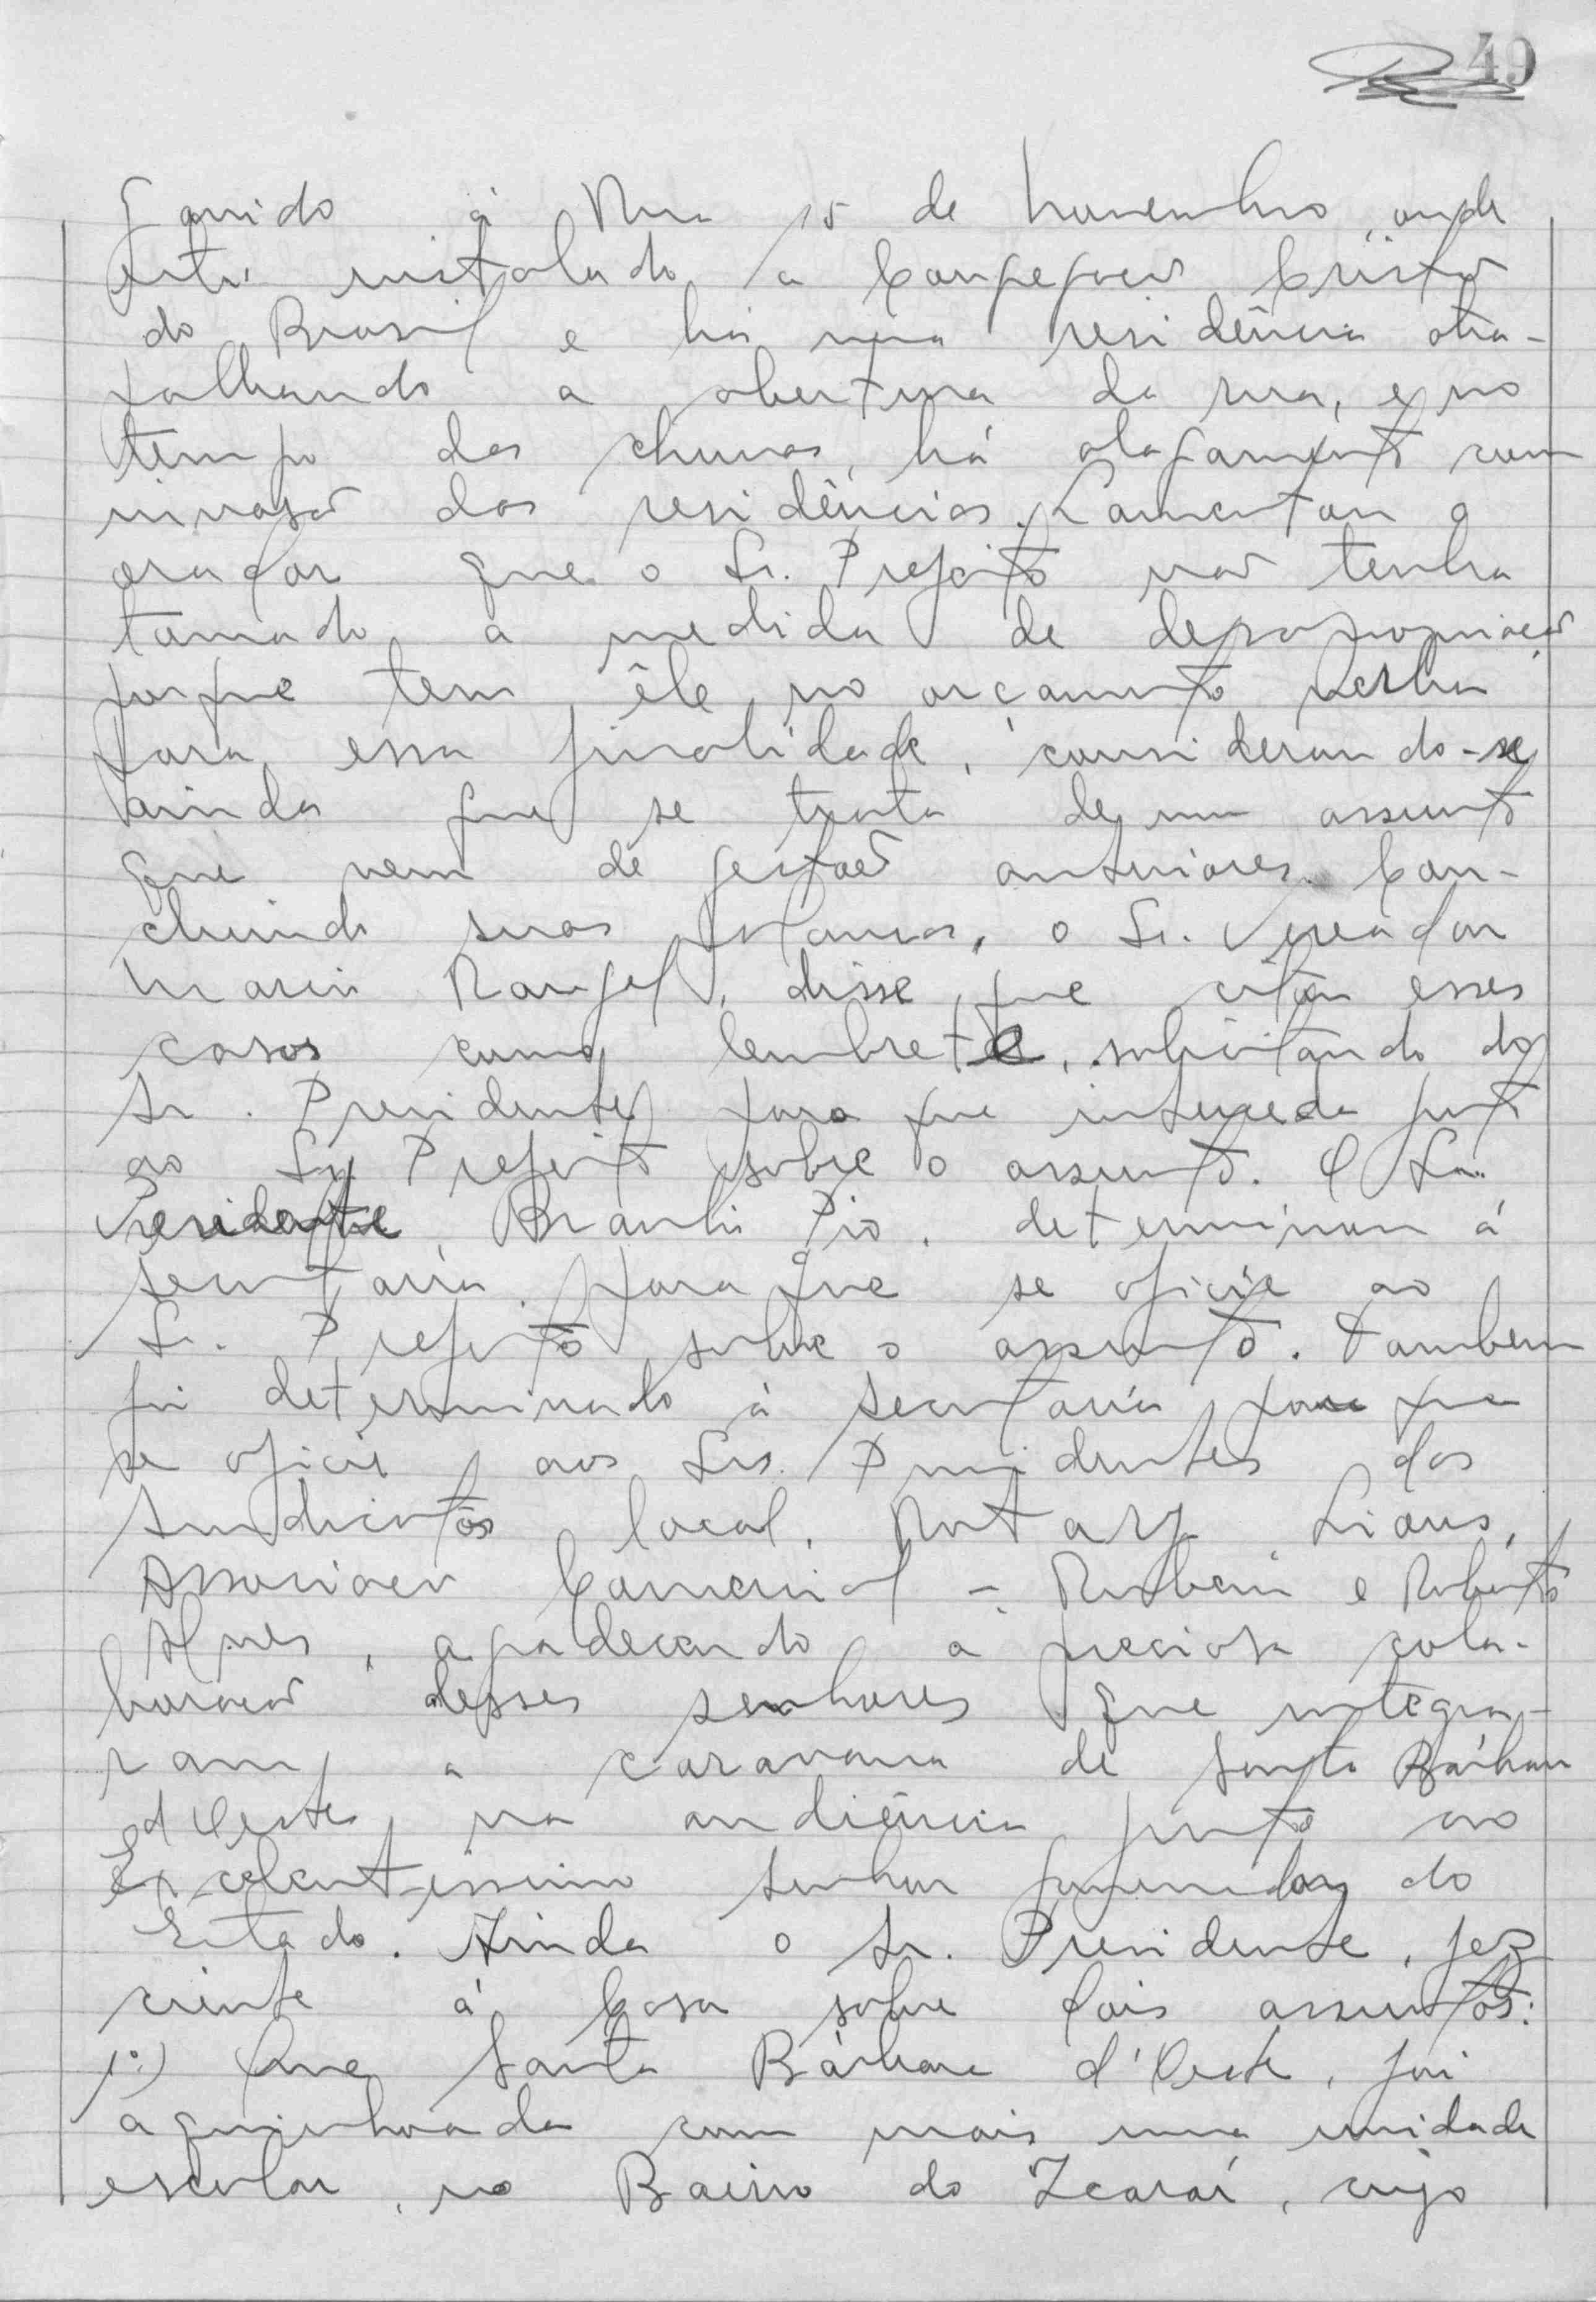 49
Garrido à Rua 15 de Novembro, onde
está instalado a Congregação Cristã
do Brasil e há uma residência atra-
palhando a abertura da rua, e no
tempo das chuvas, há alagamento com
invasão das residências. Lamentou o
orador que o Sr. Prefeito não tenha
tomado a medida de desapropriação
porque tem êle no orçamento verba
para essa finalidade, considerando-se
ainda que se trata de um assunto
que vem de gestões anteriores. Con-
cluindo suas palavras, o Sr. Vereador
Rangel, disse que citou esses
casos como lembrete, solicitando do
Sr. Presidente para que interceda junto
ao Sr. Prefeito sobre o assunto. O Sr.
Presidente, Braulio Pio, determinou á
secretaria para que se oficie ao
Sr. Prefeito sobre o assunto. Tambem
foi determinado á secretaria para que
se oficie aos Srs. Presidentes dos
Sindicatos local, Rotary Lions,
Associação Comercial - e Roberto
Alves, agradecendo a preciosa cola-
boração desses senhores que integra-
ram a caravana de Santa Bárbara
d'Oeste na audiência junto ao
Excelentissimo Senhor Governador do
Estado. Ainda o Sr. Presidente, fez
ciente á Casa sobre dois assuntos:
1º) Que Santa Bárbara d'Oeste, foi
aquinhoada com mais uma unidade
escolar, no Bairro do Icaraí, cujo